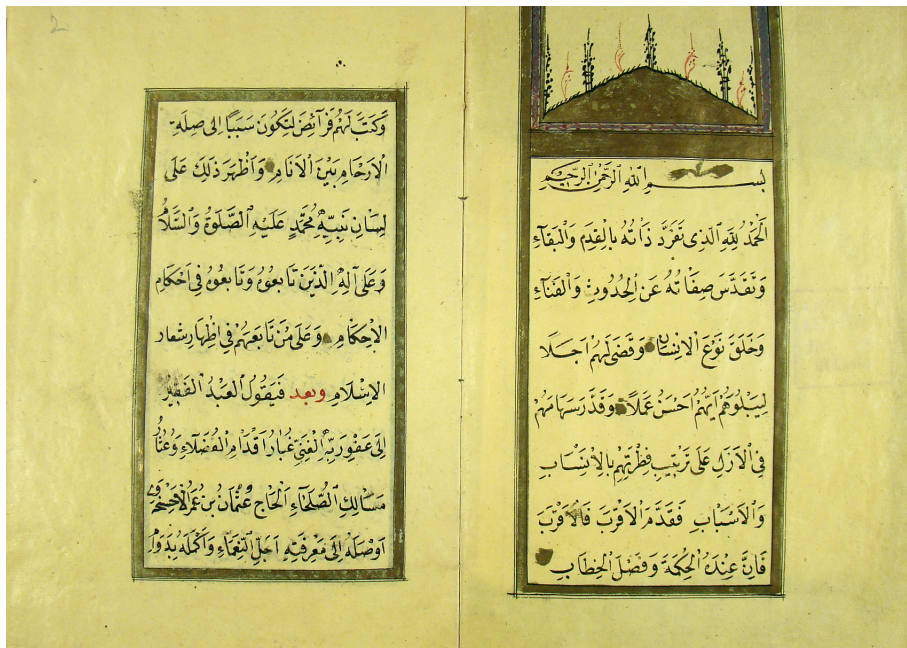 بسم الله الرحمن الرحيم
اَلْحَمْدُ لِلّٰهِ الَّذِى تَفَرَّدَ ذَاتُهُ بِالْقِدَمِ وَالْبَقَآءِ
وَتَقَدَّسَ صِفَاتُهُ عَنِ الْحُدُوثِ وَالْفَنَآءِ
وَخَلَقَ نَوْعَ الْاِنْسَانِ وَقَضٰى لَهُمْ اَجَلَا
لِيَبْلُوَهُمْ اَيُّهُمْ اَحْسَنُ عَمَلًا وَقَدَّرَ سِهَامَهُمْ
فِى الْاَزَلِ عَلٰى تَرْتِيبِ فِطْرَتِهِمْ بِالْاِنْتِسَابِ
وَالْاَسْبَابِ فَقَدَّمَ الْاَقْرَبَ فَالْاَقْرَبَ
فَاِنَّ عِنْدَهُ الْحِكْمَةَ وَفَصْلَ الْخِطَابِ
2
وَكَتَبَ لَهُمْ فَرَآئِضَ لِتَكُونَ سَبَبًا اِلٰى صِلَةِ
الْاَرْحَامِ بَيْنَ الْاَنَامِ وَاَظْهَرَ ذٰلِكَ عَلٰى
لِسَانِ نَبِيِّهِ مُحَمَّدٍ عَلَيْهِ الصَّلٰوةُ وَالسَّلَامُ
وَعَلٰى اٰلِهِ الَّذِينَ تَابَعُوهُ وَتَابَعُوهُ فِى اَحْكَامِ
الْاِحْكَامِ وَعَلٰى مَنْ تَابَعَهُمْ فِى اِظْهَارِ شِعَارِ
الْاِسْلَامِ وبعد فَيَقُولُ الْعَبْدُ الْفَقِيرُ
اِلٰى عَفْوِ رَبِّهِ الْغَنِىِّ غُبَارُ اَقْدَامِ الْفُضَلَاءِ وَ
مَسَالِكِ الصُّلَحَاءِ الْحَاج عُثْمَانُ بْنُ عُمَرَ
اَوْصَلَهُ اِلٰى مَعْرِفَتِهِ اَجَلِّ النَّعْمَاءِ وَاَكْمَلَهُ